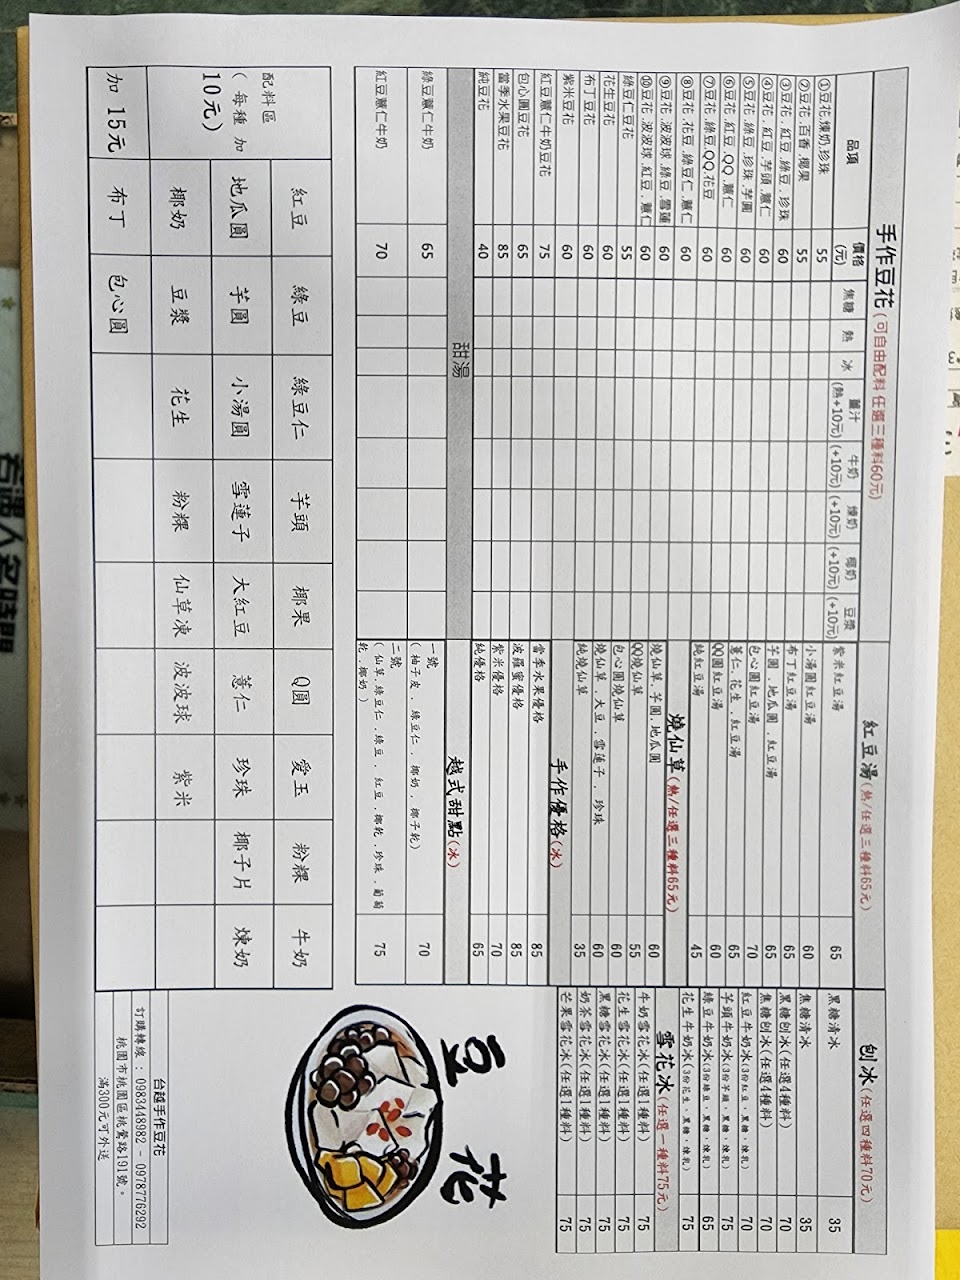 手作豆花(可自由配料 任選三種料60元)
品項 價格(元) 焦糖 熱 冰 薑汁(熱+10元) 牛奶(+10元) 煉奶(+10元) 椰奶(+10元) 豆漿(+10元)
①豆花.煉奶.珍珠 55
②豆花.百香.椰果 55
③豆花.紅豆.綠豆.珍珠 60
④豆花.紅豆.芋頭.薏仁 60
⑤豆花.綠豆.珍珠.芋圓 60
⑥豆花.紅豆.QQ.薏仁 60
⑦豆花.綠豆.QQ.花豆 60
⑧豆花.花豆.綠豆仁.薏仁 60
⑨豆花.波波球.綠豆.雪蓮 60
⑩豆花.波波球.紅豆.薏仁 60
綠豆仁豆花 55
花生豆花 60
布丁豆花 60
紫米豆花 60
紅豆薏仁牛奶豆花 75
包心圓豆花 65
當季水果豆花 85
純豆花 40
甜湯
綠豆薏仁牛奶 65
紅豆薏仁牛奶 70
紅豆湯(熱/任選三種料65元)
紫米紅豆湯 65
小湯圓紅豆湯 60
布丁紅豆湯 65
芋圓.地瓜圓.紅豆湯 65
包心圓紅豆湯 70
薏仁.花生.紅豆湯 65
QQ圓紅豆湯 60
純紅豆湯 45
燒仙草(熱/任選三種料65元)
燒仙草.芋圓.地瓜圓 60
QQ燒仙草 55
包心圓燒仙草 60
燒仙草.大豆.雪蓮子.珍珠 60
純燒仙草 35
手作優格(冰)
當季水果優格 85
波羅蜜優格 85
紫米優格 70
純優格 65
越式甜點(冰)
一號
(柚子皮.綠豆仁.椰奶.椰子乾) 70
二號
(仙草.綠豆仁.綠豆.紅豆.椰乾.珍珠.葡萄
乾.椰奶) 75
刨冰(任選四種料70元)
黑糖清冰 35
焦糖清冰 35
黑糖刨冰(任選4種料) 70
焦糖刨冰(任選4種料) 70
紅豆牛奶冰(3份紅豆,黑糖,煉乳) 70
芋頭牛奶冰(3份芋頭,黑糖,煉乳) 75
綠豆牛奶冰(3份綠豆,黑糖,煉乳) 65
花生牛奶冰(3份花生,黑糖,煉乳) 75
雪花冰(任選一種料75元)
牛奶雪花冰(任選1種料) 75
花生雪花冰(任選1種料) 75
黑糖雪花冰(任選1種料) 75
奶茶雪花冰(任選1種料) 75
芒果雪花冰(任選1種料) 75
配料區
(每種加
10元)
紅豆 綠豆 綠豆仁 芋頭 椰果 Q圓 愛玉 粉粿 牛奶
地瓜圓 芋圓 小湯圓 雪蓮子 大紅豆 薏仁 珍珠 椰子片 煉奶
椰奶 豆漿 花生 粉粿 仙草凍 波波球 紫米
加 15元 布丁 包心圓
豆花
台越手作豆花
訂購轉線:0983448982 - 0978776292
桃園市桃園區桃鶯路191號。
滿300元可外送